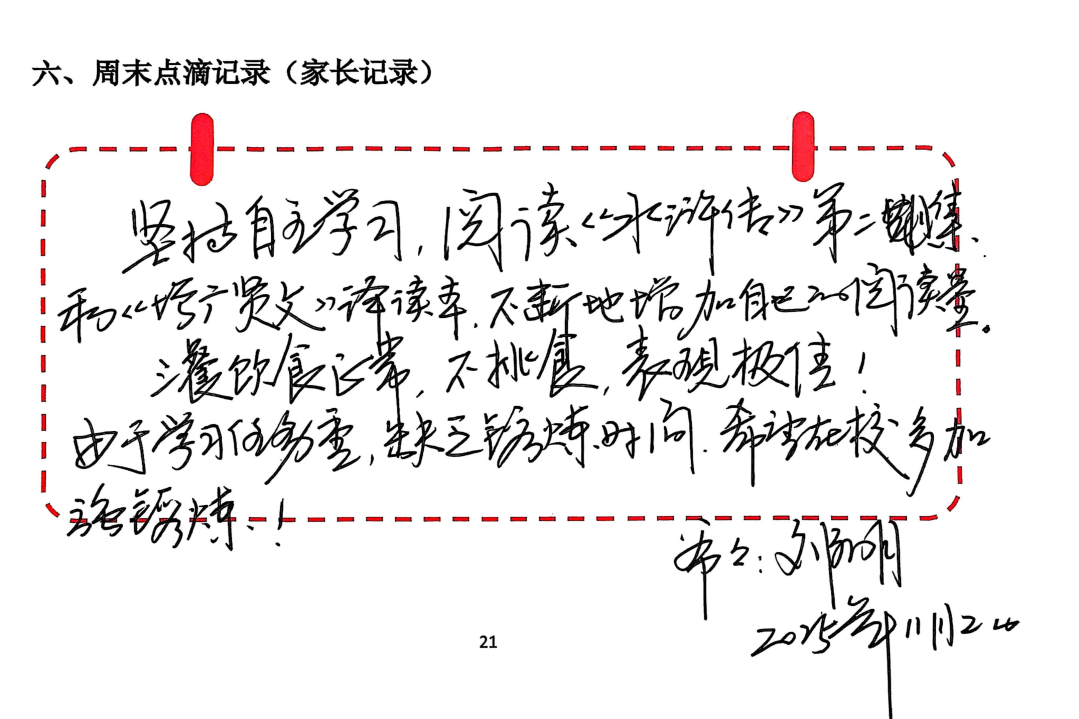 六、周末点滴记录（家长记录）
坚持自主学习,阅读《水浒传》第二集.
和《增广贤文》译读本.不断地增加自己的阅读量。
三餐饮食正常,不挑食,表现极佳!
由于学习任务重,缺乏锻炼时间.希望在校多加
强锻炼.!
爷爷:刘
2025年11月2
21